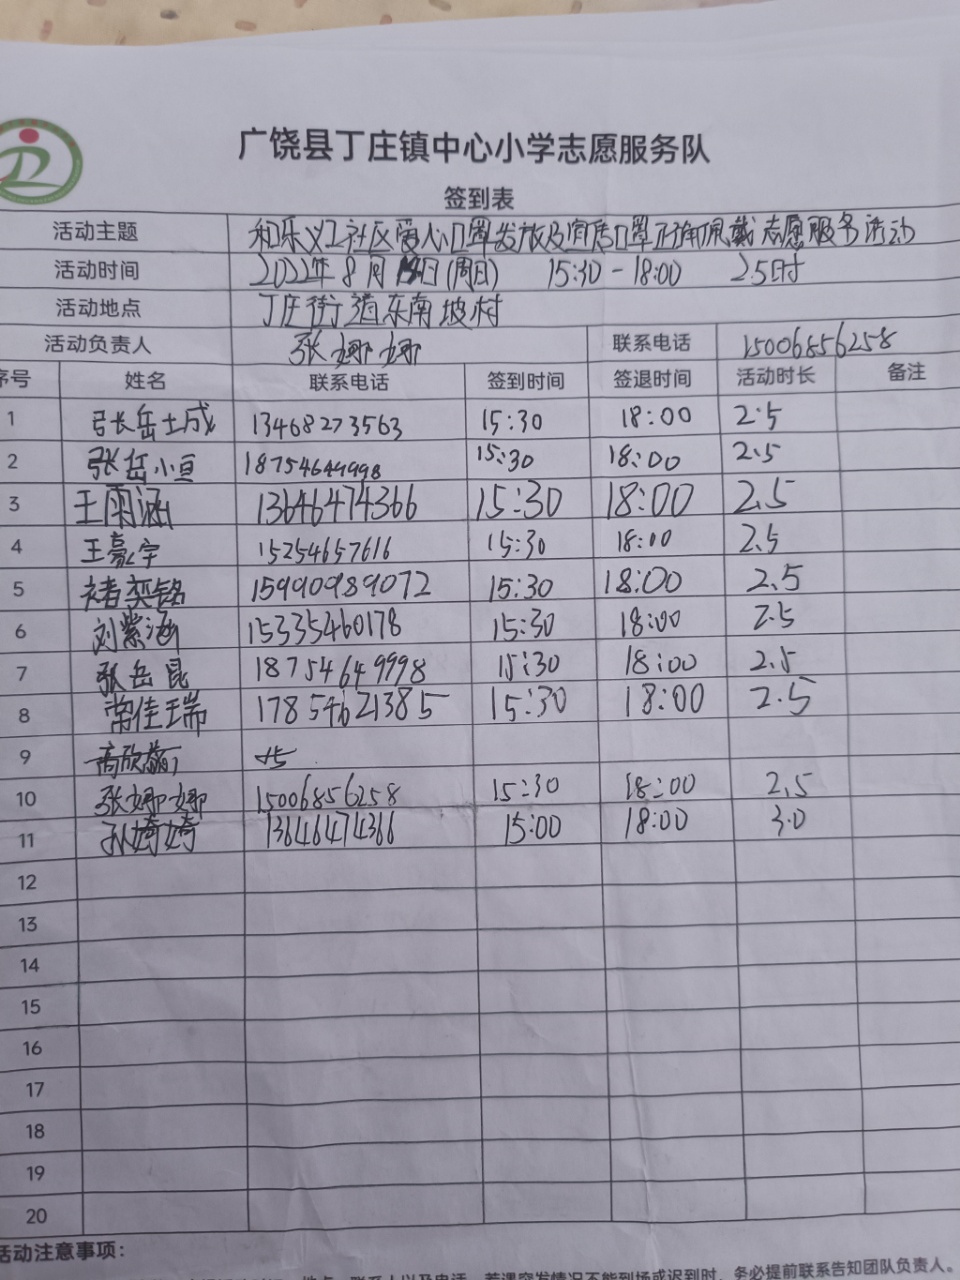 广饶县丁庄镇中心小学志愿服务队
签到表
活动主题 和乐义工社区爱心口罩发放及宣传口罩正确佩戴志愿服务活动
活动时间 2022年8月 日(周日) 15:30-18:00 2.5时
活动地点 丁庄街道东南坡村
活动负责人 张娜娜 联系电话 15006856258
序号 姓名 联系电话 签到时间 签退时间 活动时长 备注
1 张岳士成 13468273563 15:30 18:00 2.5
2 张岳小亘 18754649998 15:30 18:00 2.5
3 王雨涵 13646474366 15:30 18:00 2.5
4 王豪宇 15254657616 15:30 18:00 2.5
5 褚奕铭 15990989072 15:30 18:00 2.5
6 刘紫涵 15335460178 15:30 18:00 2.5
7 张岳昆 18754649998 15:30 18:00 2.5
8 常佳瑞 17854621385 15:30 18:00 2.5
9 高欣
10 张娜娜 15006856258 15:30 18:00 2.5
11 孙婍婍 13646474366 15:00 18:00 3.0
12
13
14
15
16
17
18
19
20
活动注意事项：
地点、联系人以及电话，若遇突发情况不能到场或迟到时，务必提前联系告知团队负责人。